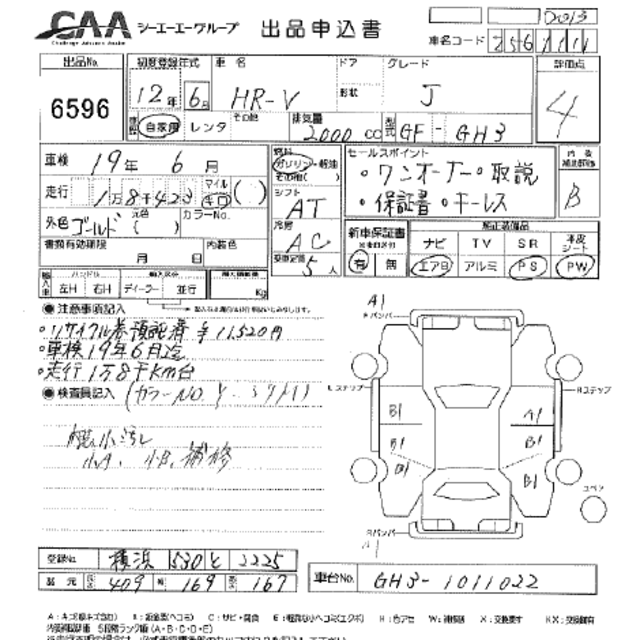 CAA シーエーエーグループ 出品申込書 2013
Challenge Advance Awake
車名コード 256 1111
出品No. 6596
初度登録年式 12年 6月
車名 HR-V
ドア 形状
グレード J
評価点 4
自家用 レンタ その他
排気量 2000 CC
型式 GF-GH3
車検 19年 6月
走行 1万8千423 マイル キロ ( )
外色 ゴールド 元色 ( ) カラーNo.
書類有効期限 月 日 内装色
燃料 ガソリン・軽油 その他( )
シフト AT
冷房 AC
乗車定員 5人
セールスポイント
・ワンオーナー・取説
・保証書・キーレス
内装 補助評価 B
新車保証書 有 無
純正装備品
ナビ TV SR 本皮シート
エアB アルミ PS PW
輸入車 ハンドル 左H 右H ディーラー 並行 Kg
●注意事項記入
・リサイクル券預託済 ¥11,520円
・車検19年6月迄
・走行1万8千km台
●検査員記入
小キズ、小凹、補修
A1
Fバンパー
Lステップ Rステップ
B1 A1
B1 B1
B1 B1
スペア
Rバンパー
A1
登録No. 横浜 530 と 2225
諸元 長さ 409 幅 169 高さ 167
車台No. GH3-1011022